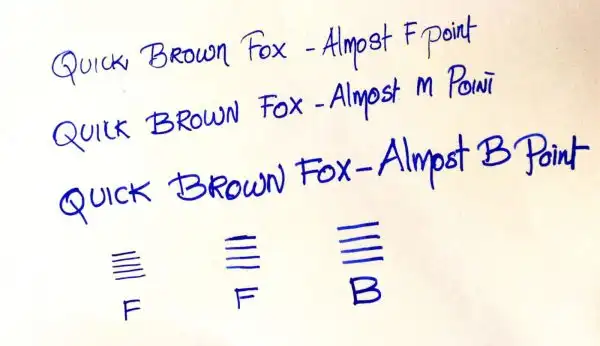 QUICK BROWN FOX - Almost F point
QUICK BROWN FOX - Almost M POINT
QUICK BROWN FOX - Almost B Point
F F B